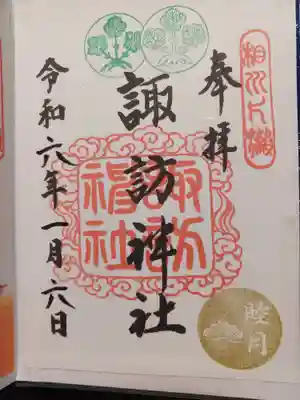 奉拝
諏訪神社
諏訪
神社
令和六年一月六日
睦月